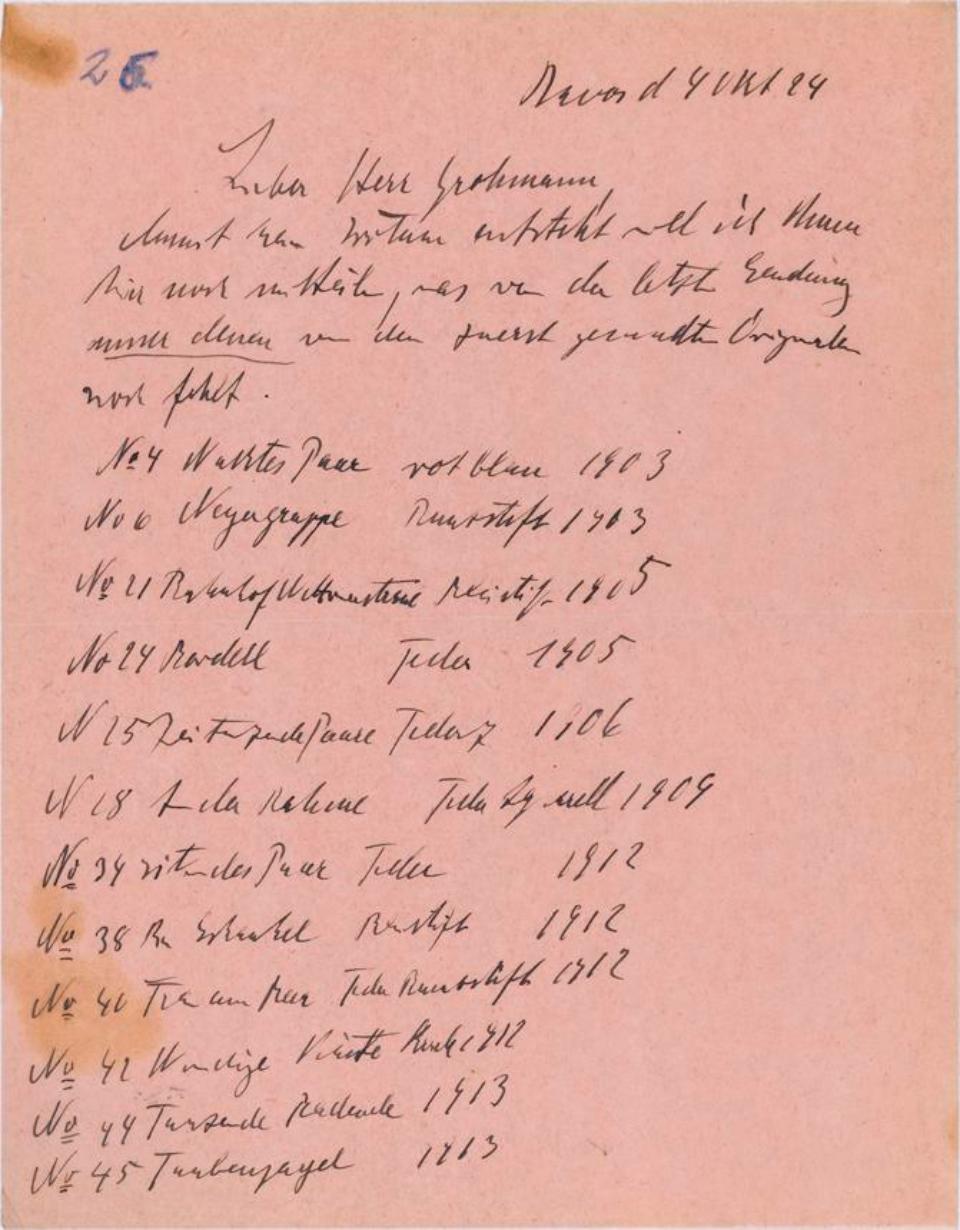 25
Davos d 4 Okt 24
Lieber Herr Grohmann,
damit kein Irrtum entsteht will ich Ihnen
hier noch mitteilen, was von der letzten Sendung
ausser denen von den zuerst gesandten Originalen
noch fehlt.
No 4 Nacktes Paar rot blau 1903
No 6 Negergruppe 1903
No 21 Bahnhof 1905
No 24 Bordell Feder 1905
N 25 Paare Feder 1906
N 28 Feder Aquarell 1909
No 34 Paar Feder 1912
No 38 Bleistift 1912
No 40 Frau am Meer Feder 1912
No 42 Windige Küste 1912
No 44 Badende 1913
No 45 1913